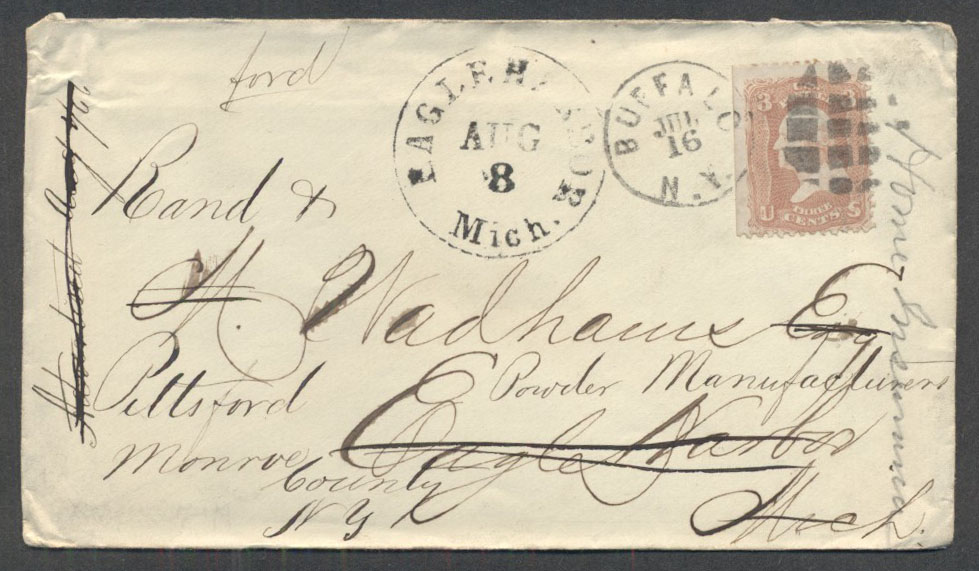 ford
EAGLE HARBOR
AUG
8
Mich.
BUFFALO
JUL
16
N.Y.
3 3
U THREE S
CENTS
Rand &
H. Wadhams Esq
Powder Manufacturers
Pittsford
Eagle Harbor
Monroe
County
Mich.
N Y